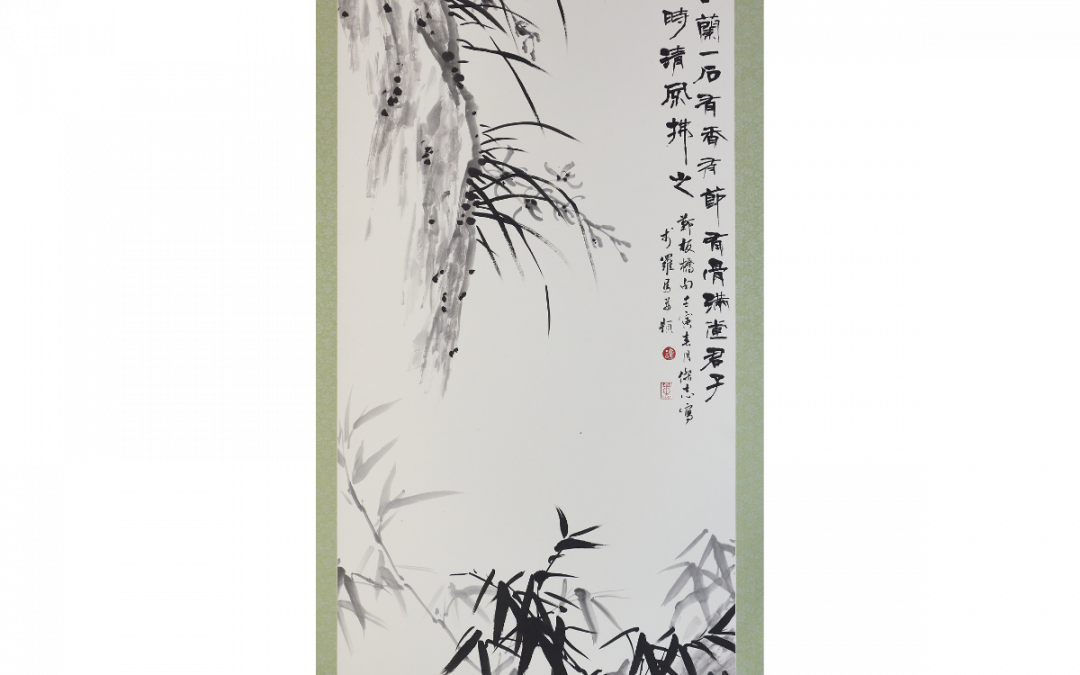 蘭一石有香有節有骨滿堂君子
時清風拂之
鄭板橋句壬寅春月 志寫
於羅馬